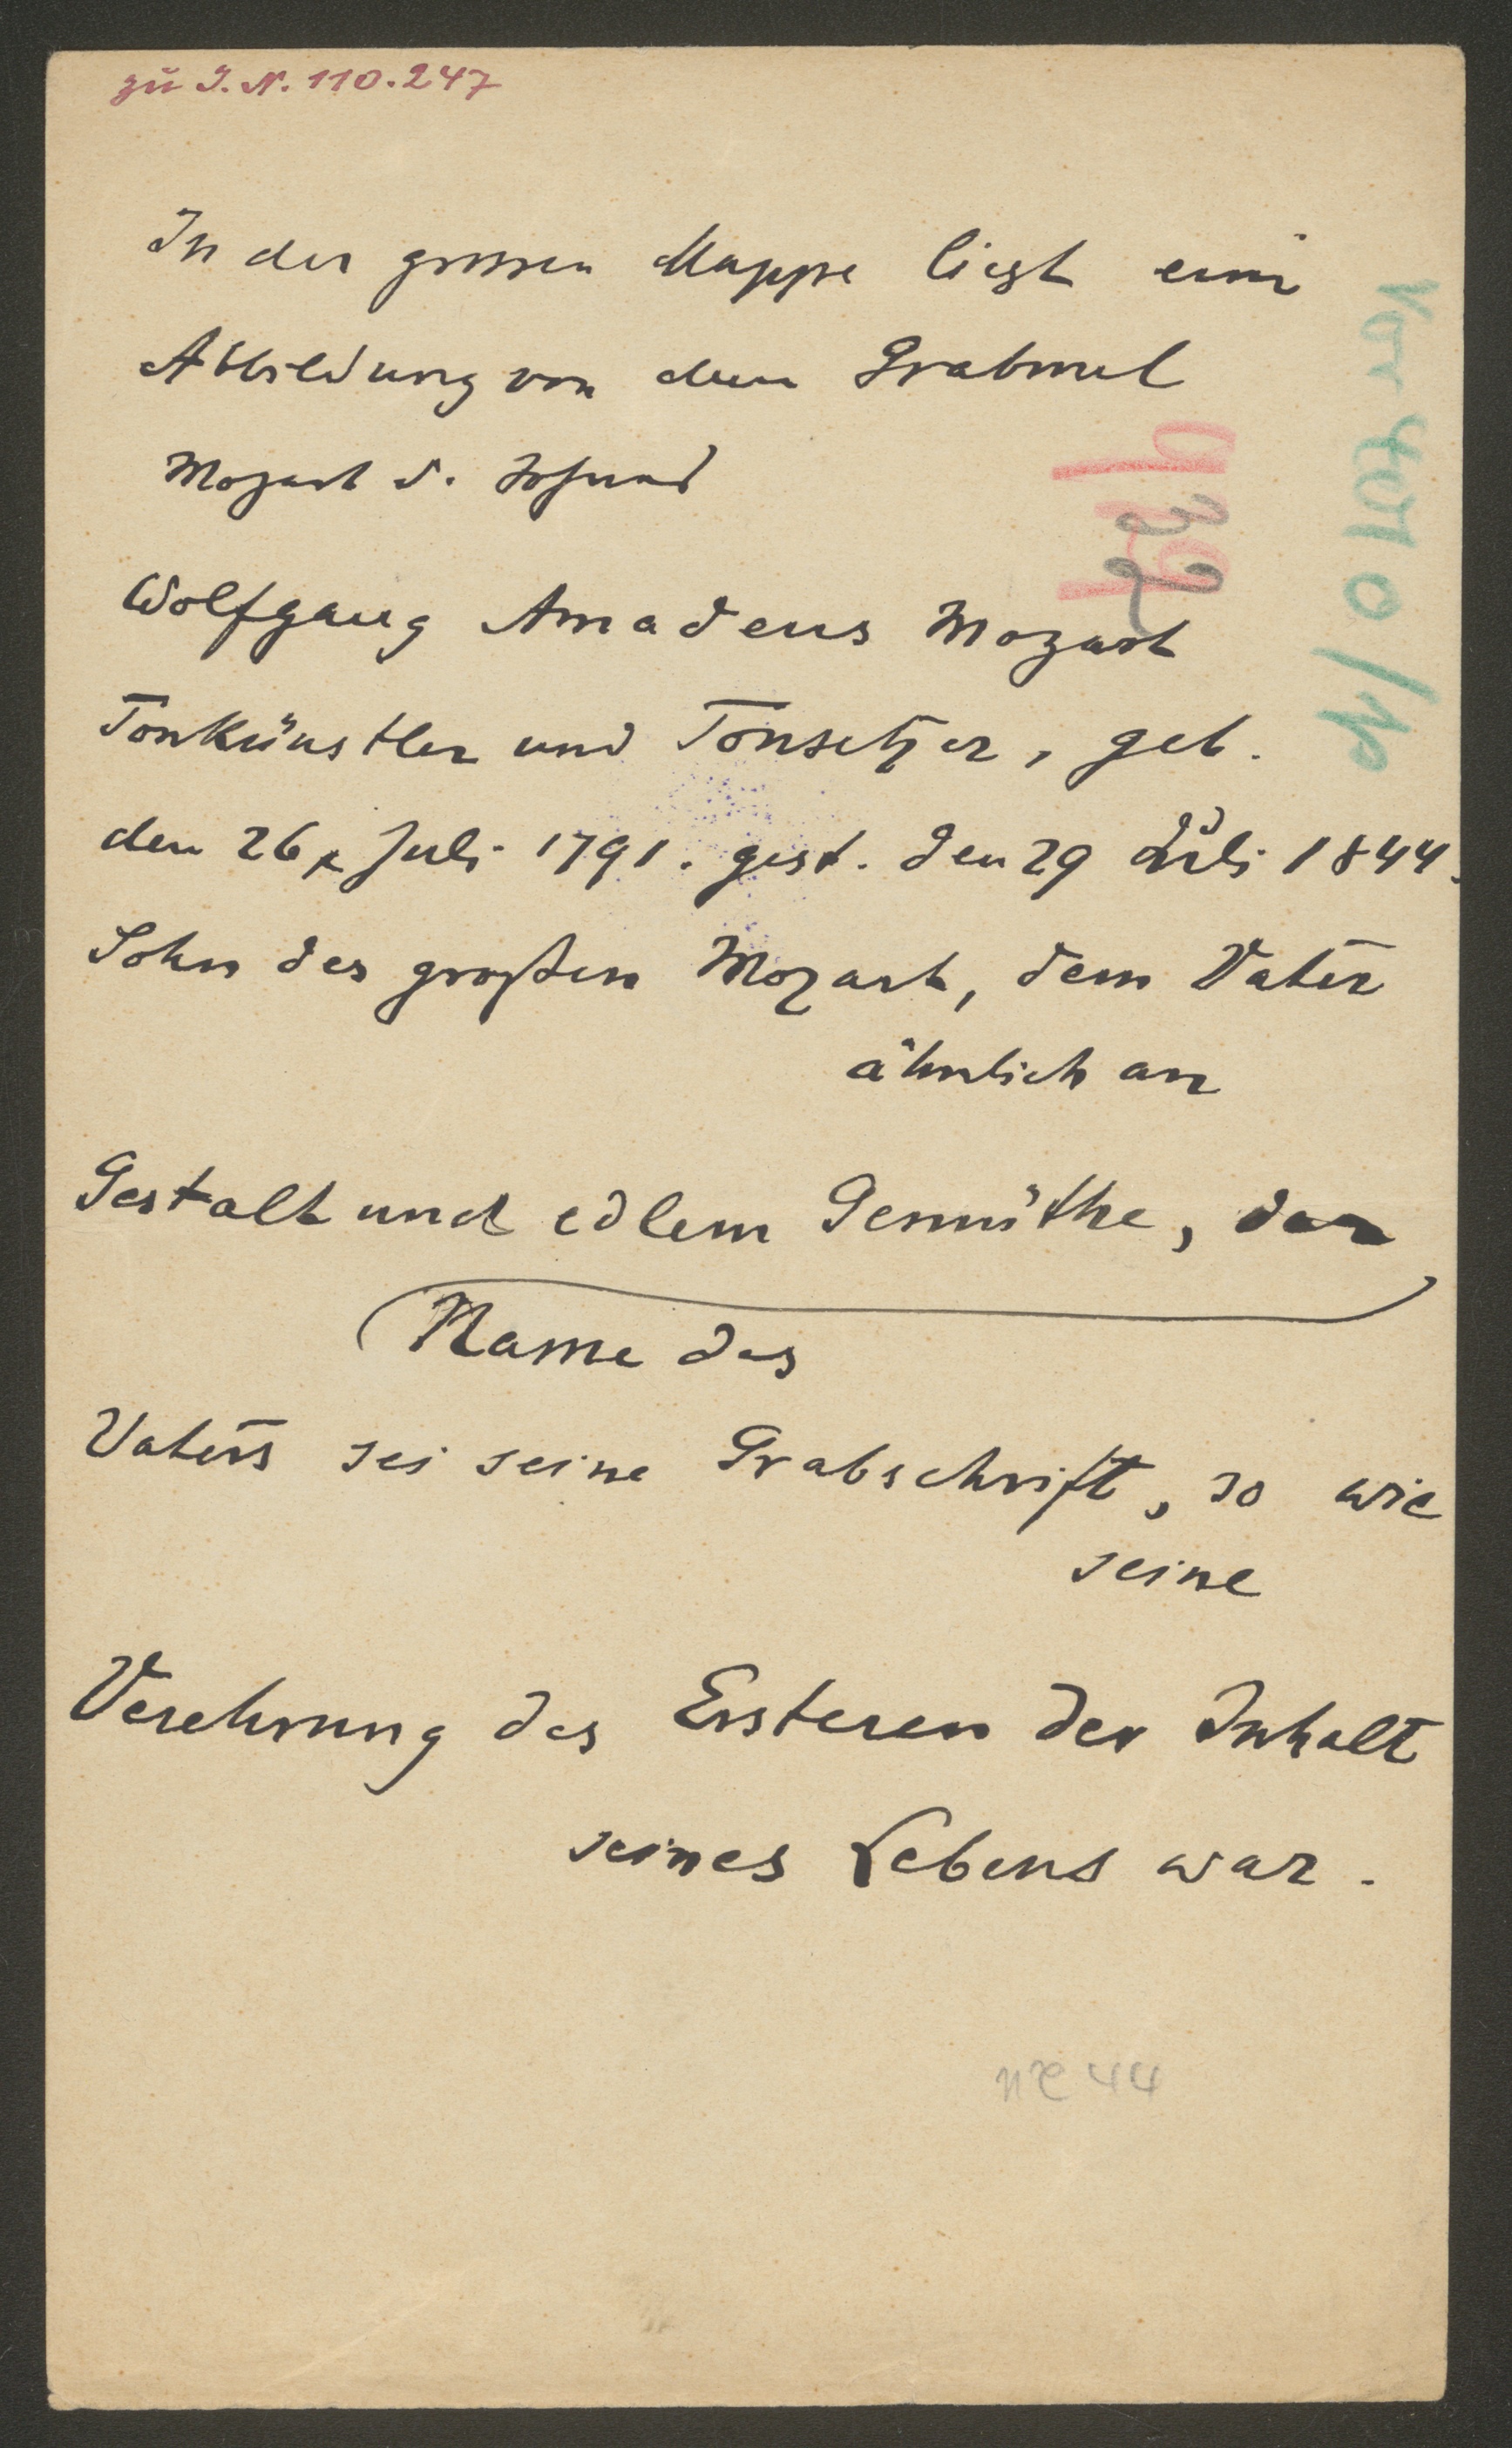 zu I. N. 110.247
In der grossen Mappe liegt eine
Abbildung von dem Grabmal
Mozart d.
Wolfgang Amadeus Mozart
Tonkünstler und Tonsetzer, geb.
den 26 Juli 1791. gest. den 29 Juli 1844.
Sohn des großen Mozart, dem Vater
ähnlich an
Gestalt und edlem Gemüthe, der
Name des
Vaters sei seine Grabschrift, so wie
seine
Verehrung des Ersteren der Inhalt
seines Lebens war.
44